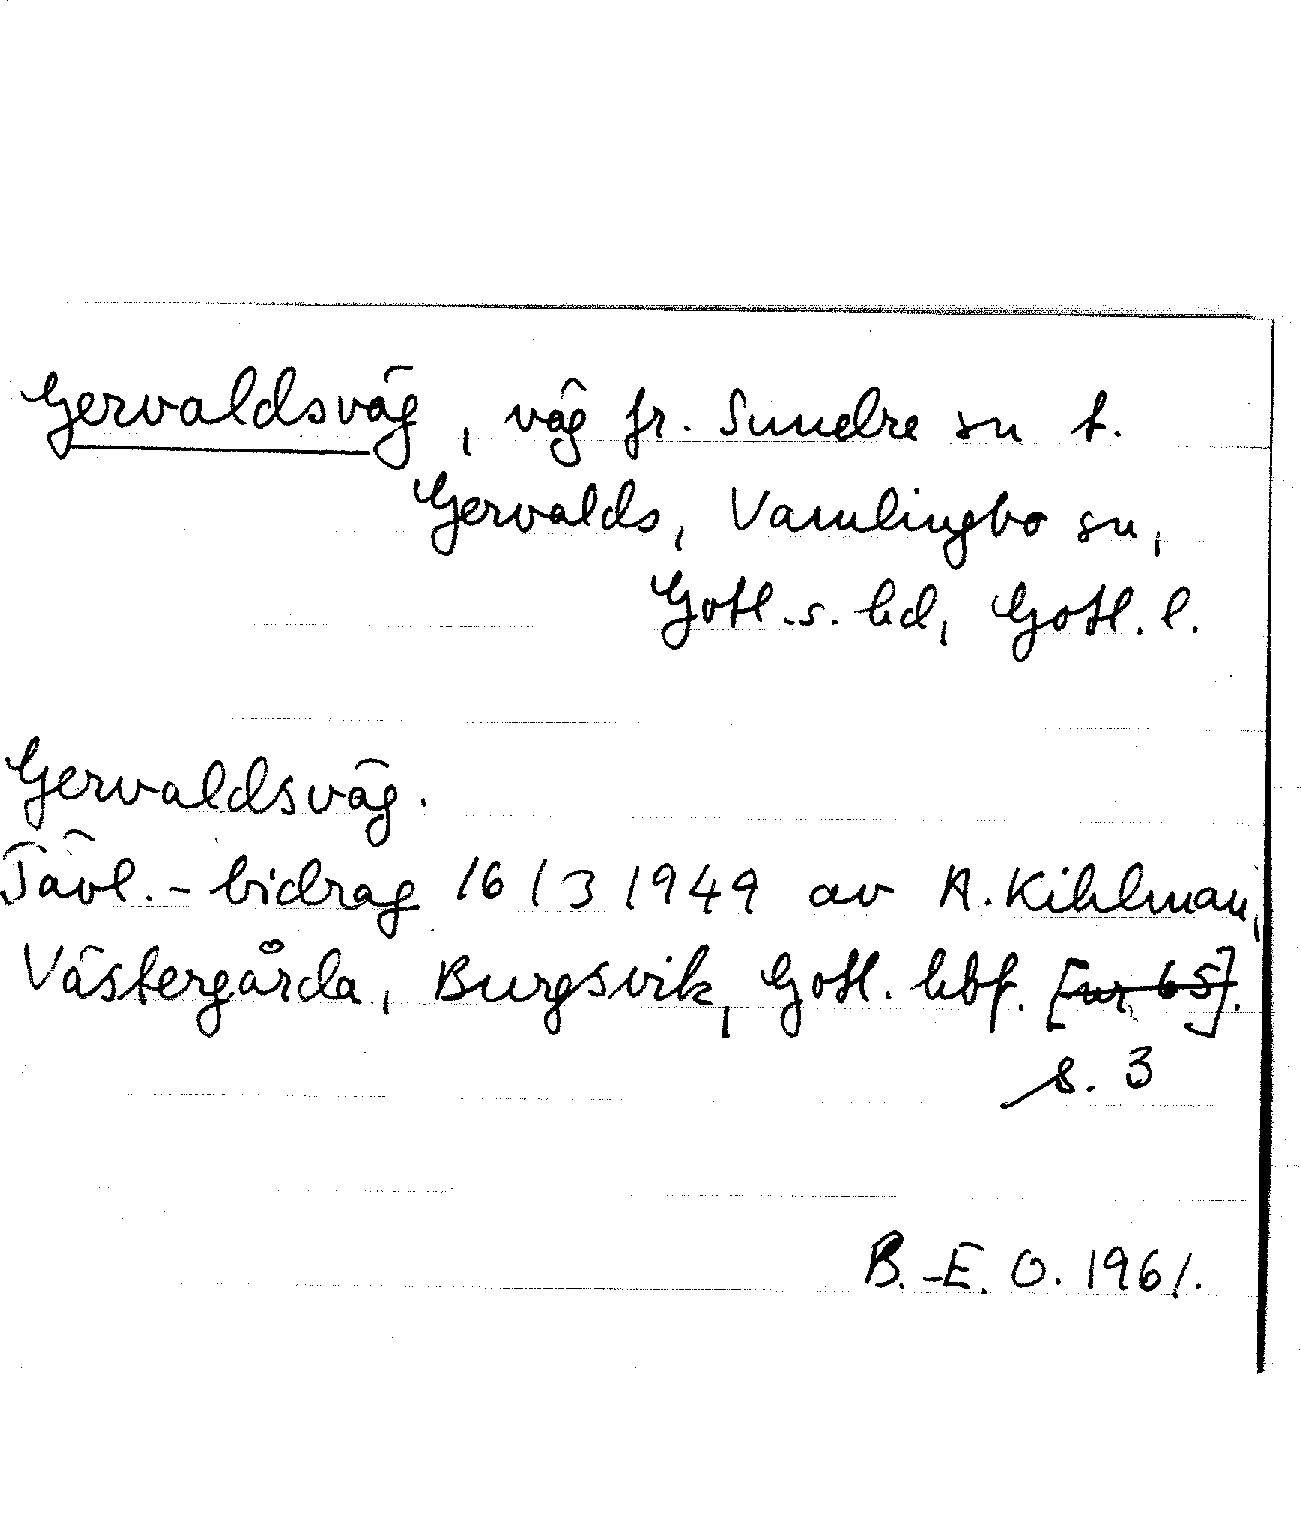 Gervaldsväg, väg fr. Sundre sn t.
Gervalds, Vamlingbo sn,
Gotl.s. hd, Gotl. l.
Gervaldsväg.
Tävl.-bidrag 16/3 1949 av A. Kihlman,
Västergårda, Burgsvik, Gotl. hbf. [nr 65].
s. 3
B.-E. O. 1961.